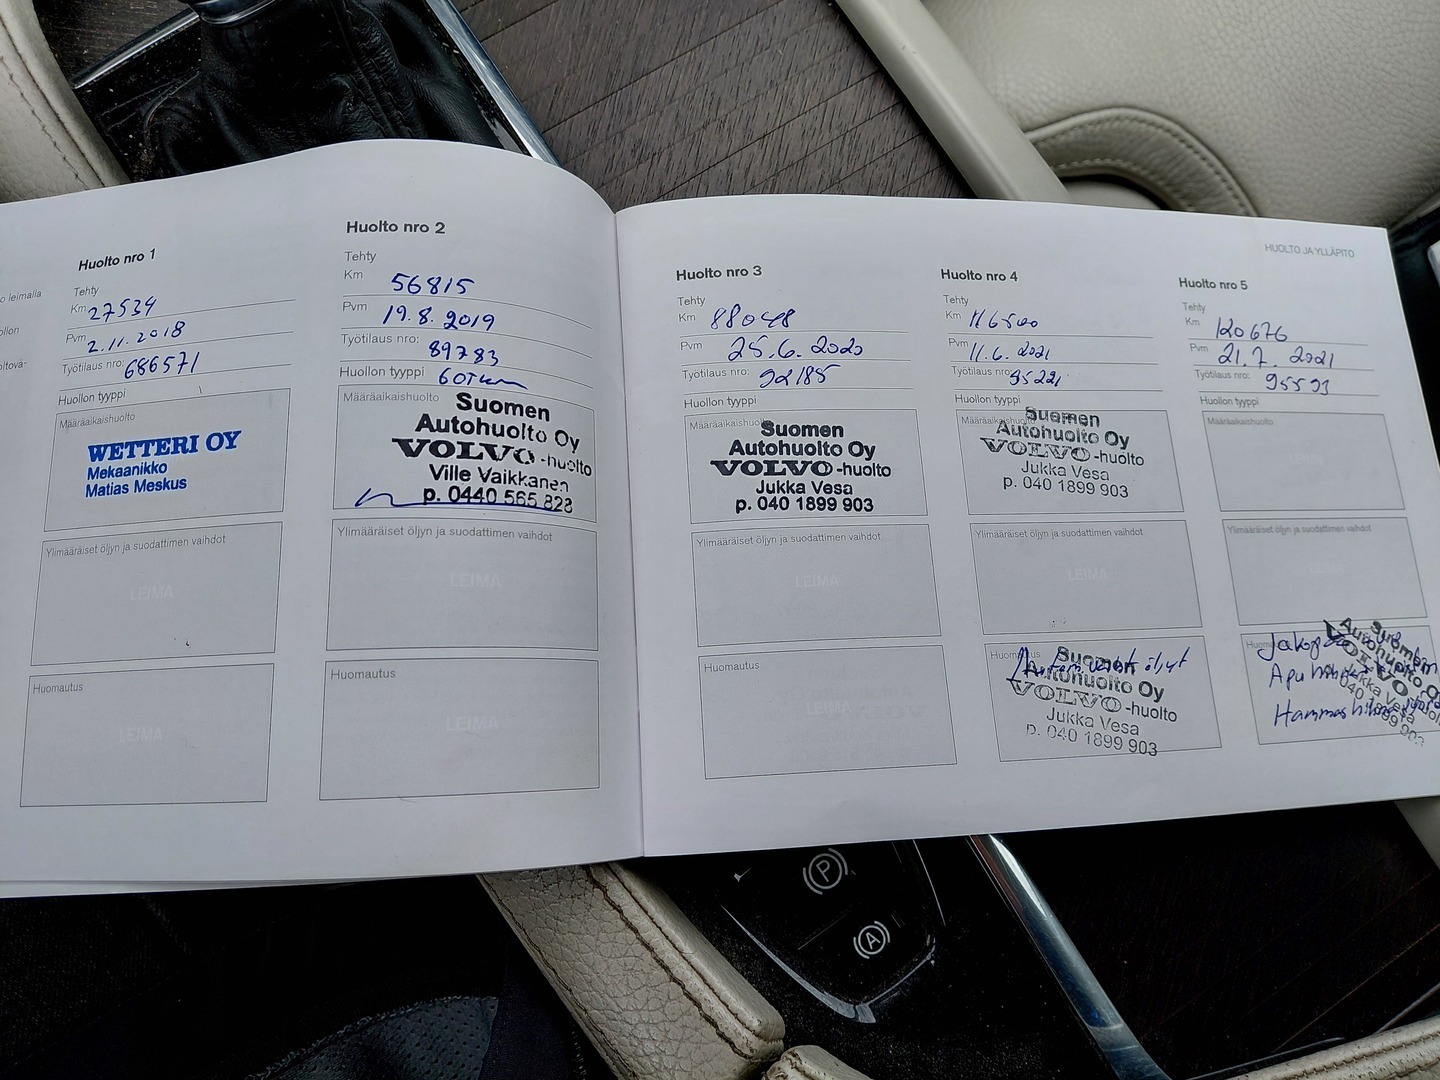 o leimalla
ollon
oltovä-
Huolto nro 1
Tehty
Km 27534
Pvm 2.11.2018
Työtilaus nro: 686571
Huollon tyyppi
Määräaikaishuolto
WETTERI OY
Mekaanikko
Matias Meskus
Ylimääräiset öljyn ja suodattimen vaihdot
LEIMA
Huomautus
LEIMA
Huolto nro 2
Tehty
Km 56815
Pvm 19.8.2019
Työtilaus nro: 89783
Huollon tyyppi 60Tkm
Määräaikaishuolto
Suomen
Autohuolto Oy
VOLVO-huolto
Ville Vaikkanen
p. 0440 565 828
Ylimääräiset öljyn ja suodattimen vaihdot
LEIMA
Huomautus
LEIMA
HUOLTO JA YLLÄPITO
Huolto nro 3
Tehty
Km 88048
Pvm 25.6.2020
Työtilaus nro: 92185
Huollon tyyppi
Määräaikaishuolto
Suomen
Autohuolto Oy
VOLVO-huolto
Jukka Vesa
p. 040 1899 903
Ylimääräiset öljyn ja suodattimen vaihdot
LEIMA
Huomautus
LEIMA
Huolto nro 4
Tehty
Km 116500
Pvm 11.6.2021
Työtilaus nro: 95221
Huollon tyyppi
Määräaikaishuolto
Suomen
Autohuolto Oy
VOLVO-huolto
Jukka Vesa
p. 040 1899 903
Ylimääräiset öljyn ja suodattimen vaihdot
LEIMA
Huomautus
öljyt
Suomen
Autohuolto Oy
VOLVO-huolto
Jukka Vesa
p. 040 1899 903
Huolto nro 5
Tehty
Km 120676
Pvm 21.7.2021
Työtilaus nro: 95593
Huollon tyyppi
Määräaikaishuolto
Ylimääräiset öljyn ja suodattimen vaihdot
LEIMA
Jakop
Apu
Hammashihna
Suomen
Autohuolto Oy
VOLVO
Jukka Vesa
040 1899 903
P
A